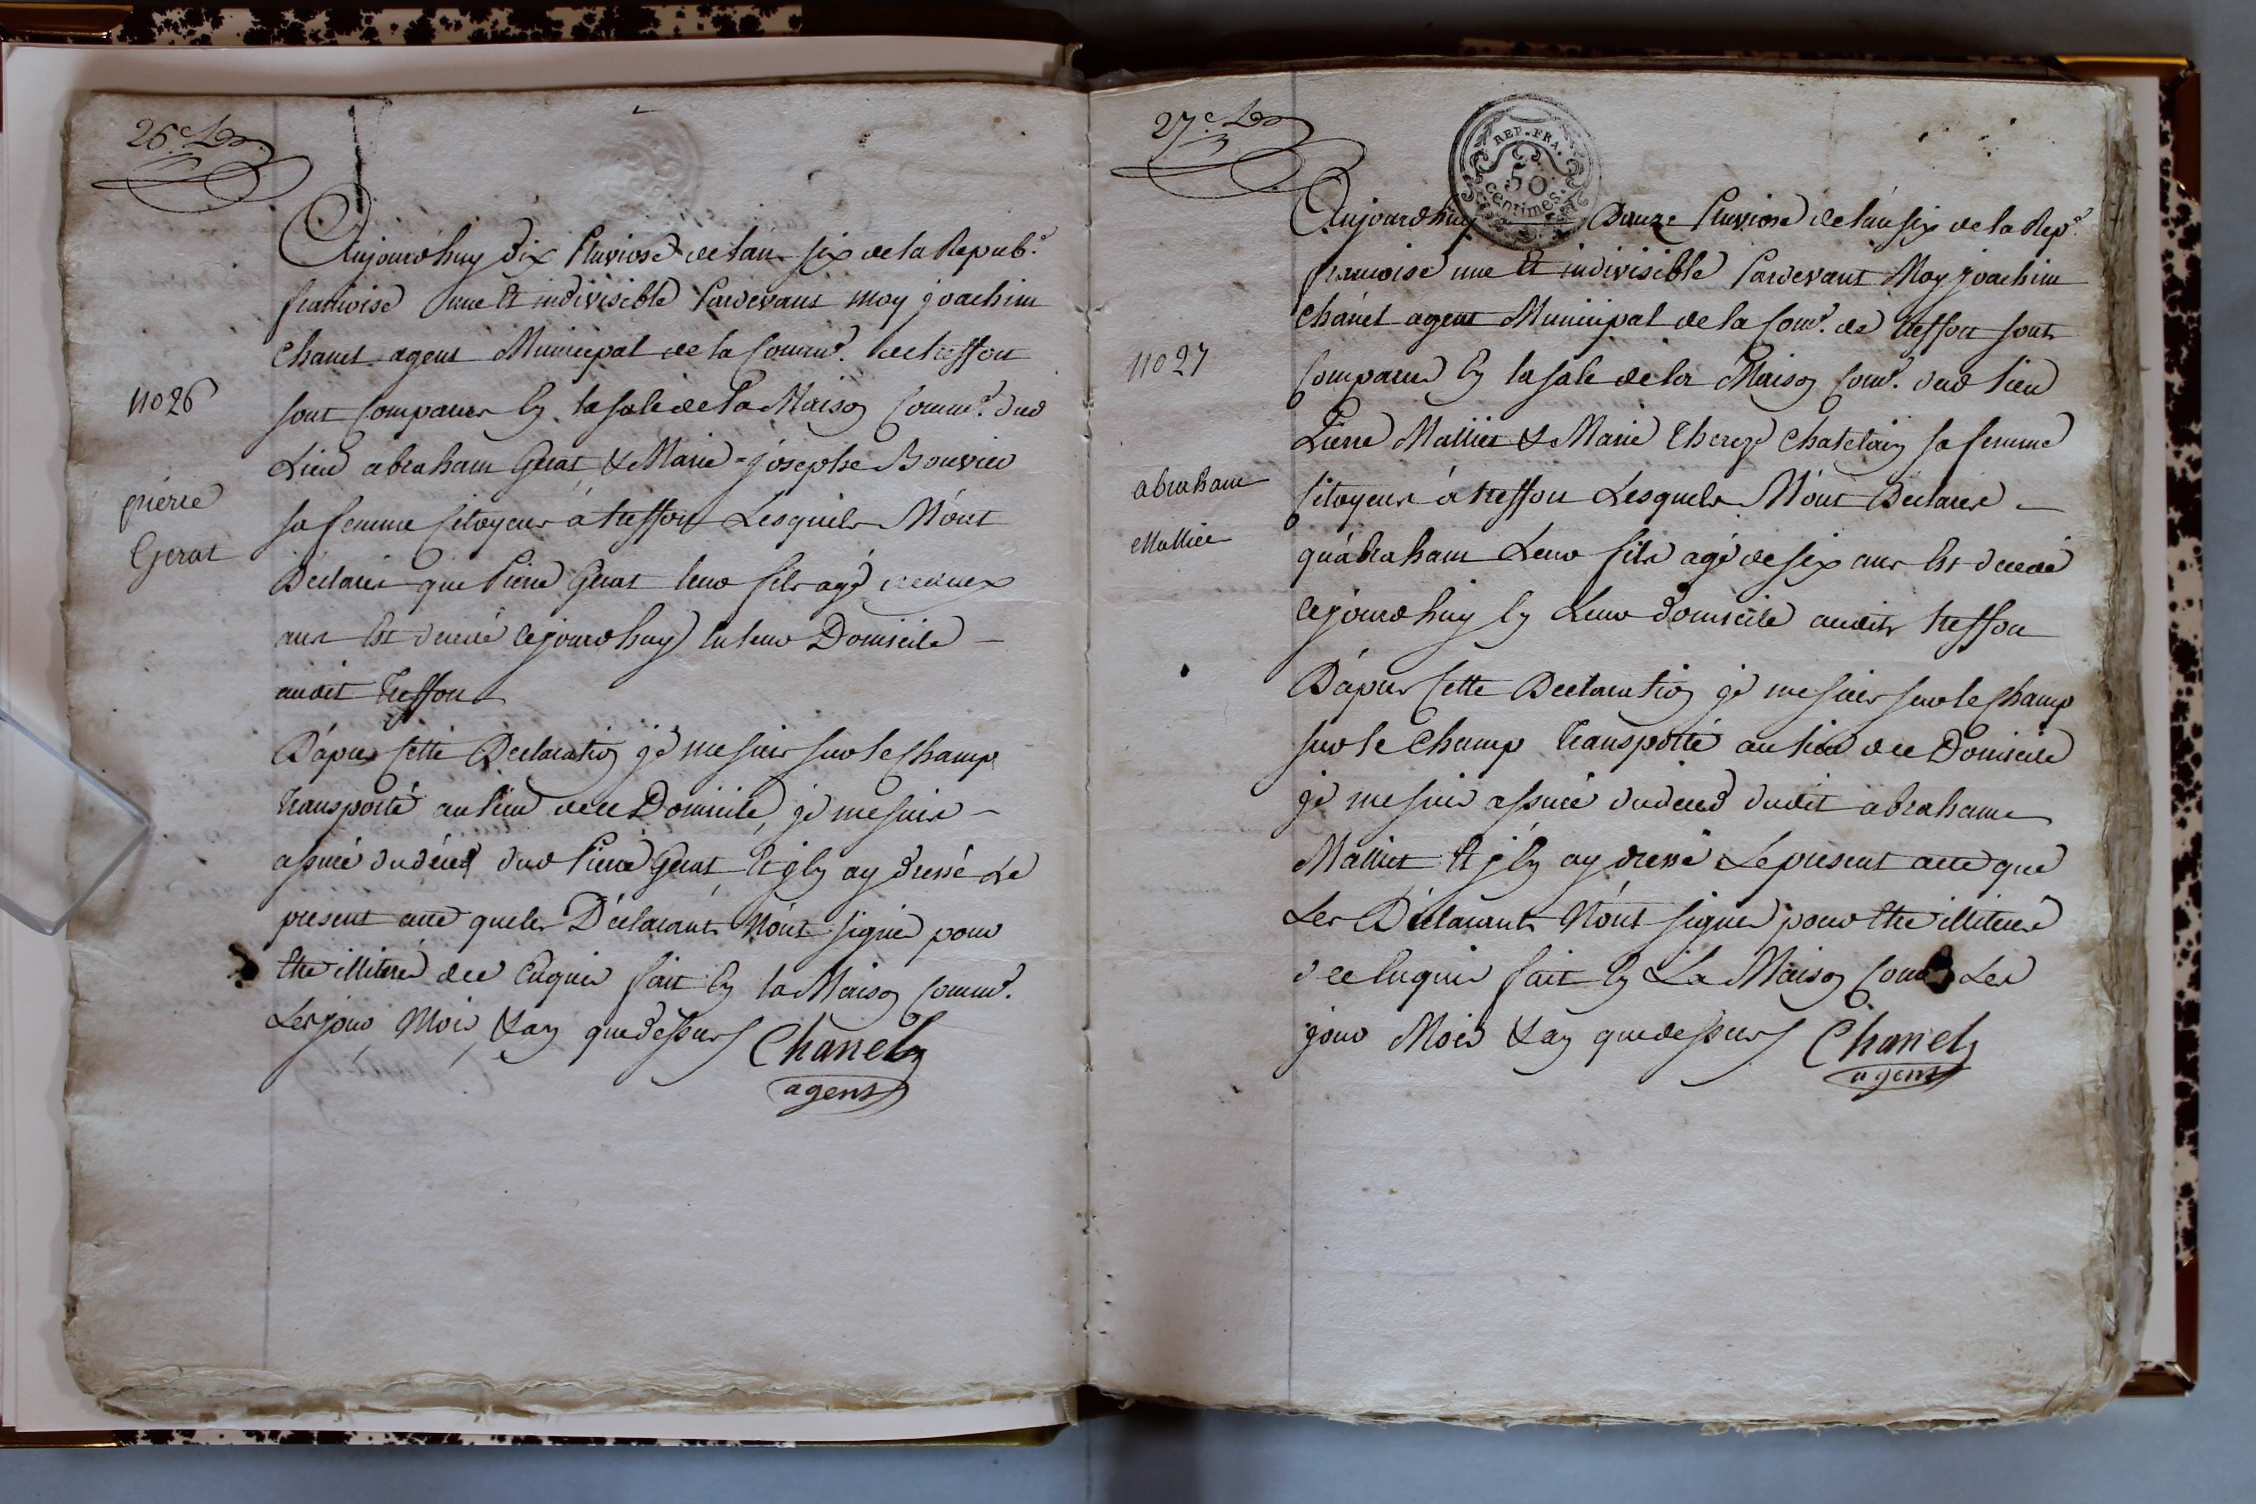 26.e
Aujourdhuy dix Pluviose de lan six de la Repub.e
francoise une Et indivisible Pardevant moy joachim
Chanel agent Municipal de la Comm.e de treffort
sont comparus En la sale de la Maison Comm.e dud
Lieu abraham Gerat & Marie = josephe Bouvier
sa femme Citoyens á treffort Lesquels M'ont
Déclarés que Pierre Gerat leur fils agé
ans Est décedé cejourdhuy En leur Domicile –
audit treffort
D'apres Cette Declaration je me suis sur le Champ
transporté au lieu de ce Domicile, je me suis –
assuré du décéd dud Pierre Gerat, Et j'En ay dressé Le
present acte que les Déclarants N'ont signés pour
Etre illiteré de ce Enquis fait En la Maison Comm.e
Les jour, Mois, & an que dessus
Chanel
agent
no 26
pierre
Gerat
27.e
REP. FRA.
50
centimes.
Aujourdhuy Douze Pluviose de lán six de la Rep.e
francoise une Et indivisible Pardevant Moy joachim
Chanel agent Municipal de la Com.e de treffort sont
Comparus En la sale de la Maison Com.e dud lieu
Pierre Mallict & Marie Thereze Chatelain sa femme
Citoyens á treffort Lesquels M'ont Déclarés –
qu'abraham Leur fils agé de six ans Est décedé
cejourdhuy En Leur domicile audit treffort
D'apres Cette Declaration je me suis sur le Champ
sur le Champ transporté au lieu de ce Domicile
je me suis assuré du décéd dudit abraham
Mallict Et j'En ay dressé Le present acte que
Les Déclarants N'ont signés pour Etre illiteré
de ce Enquis fait En La Maison Com.e Les
jour Mois & an que dessus
Chanel
agent
no 27
abraham